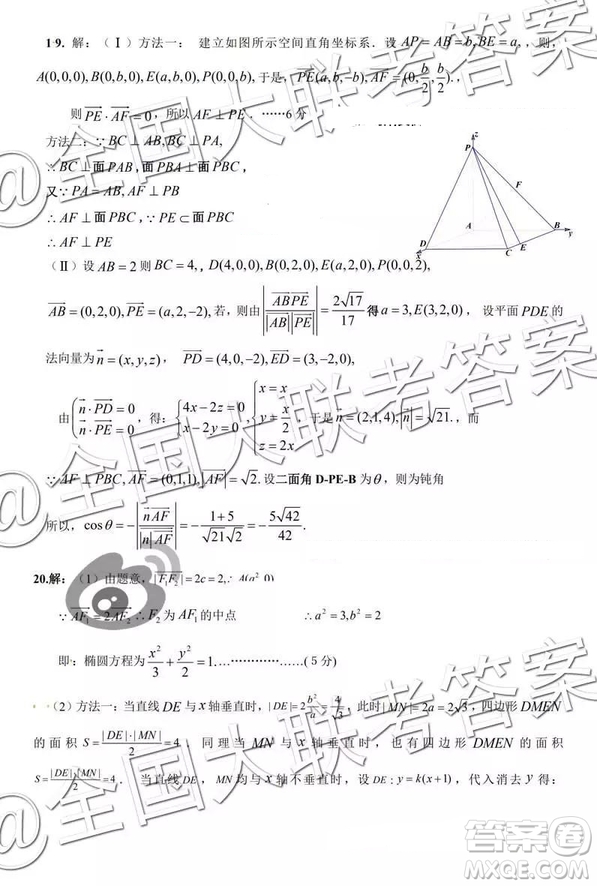 19. 解：（Ⅰ）方法一： 建立如图所示空间直角坐标系．设 AP=AB=b,BE=a,，则,
A(0,0,0),B(0,b,0),E(a,b,0),P(0,0,b),于是，PE(a,b,-b),AF=(0,b/2,b/2).，
则 PE·AF=0，所以 AE⊥PE．……6分
方法二：∵BC⊥AB,BC⊥PA,
∴BC⊥面PAB,面PBC⊥面PAB,
又∵PA=AB,AF⊥PB
∴AF⊥面PBC,∵PE⊂面PBC
∴AF⊥PE
z
P
F
A
B
y
D
C
E
x
（Ⅱ）设 AB=2 则 BC=4,，D(4,0,0),B(0,2,0),E(a,2,0),P(0,0,2),
AB=(0,2,0),PE=(a,2,-2),若，则由 |ABPE/|AB||PE||=2√17/17 得 a=3,E(3,2,0)， 设平面 PDE 的
法向量为 n=(x,y,z)， PD=(4,0,-2),ED=(3,-2,0),
由 {n·PD=0 n·PE=0， 得：{4x-2z=0 x-2y=0，{x=x y=x/2 z=2x，于是 n=(2,1,4);|n|=√21.，而
∵AF⊥PBC,AF=(0,1,1),|AF|=√2.设二面角 D-PE-B 为θ，则为钝角
所以，cosθ=-|nAF/|n|AF||=-(1+5)/(√21√2)=-5√42/42.
20.解：（1）由题意，|F₁F₂|=2c=2,∴A(a² 0)
∵AF₁=2AF₂∴F₂为 AF₁的中点 ∴a²=3,b²=2
即：椭圆方程为 x²/3+y²/2=1.……………(５分)
（2）方法一：当直线 DE 与 x 轴垂直时，|DE|=2b²/a=4/√3，此时|MN|=2a=2√3，四边形 DMEN
的面积 S=|DE|·|MN|/2=4．同理当 MN 与 x 轴垂直时，也有四边形 DMEN 的面积
S=|DE|·|MN|/2=4． 当直线 DE，MN 均与 x 轴不垂直时，设 DE:y=k(x+1)，代入消去 y 得：
@全国大联考答案
@全国大联考答案
@全国大联考答案
答案圈
MXQE.COM